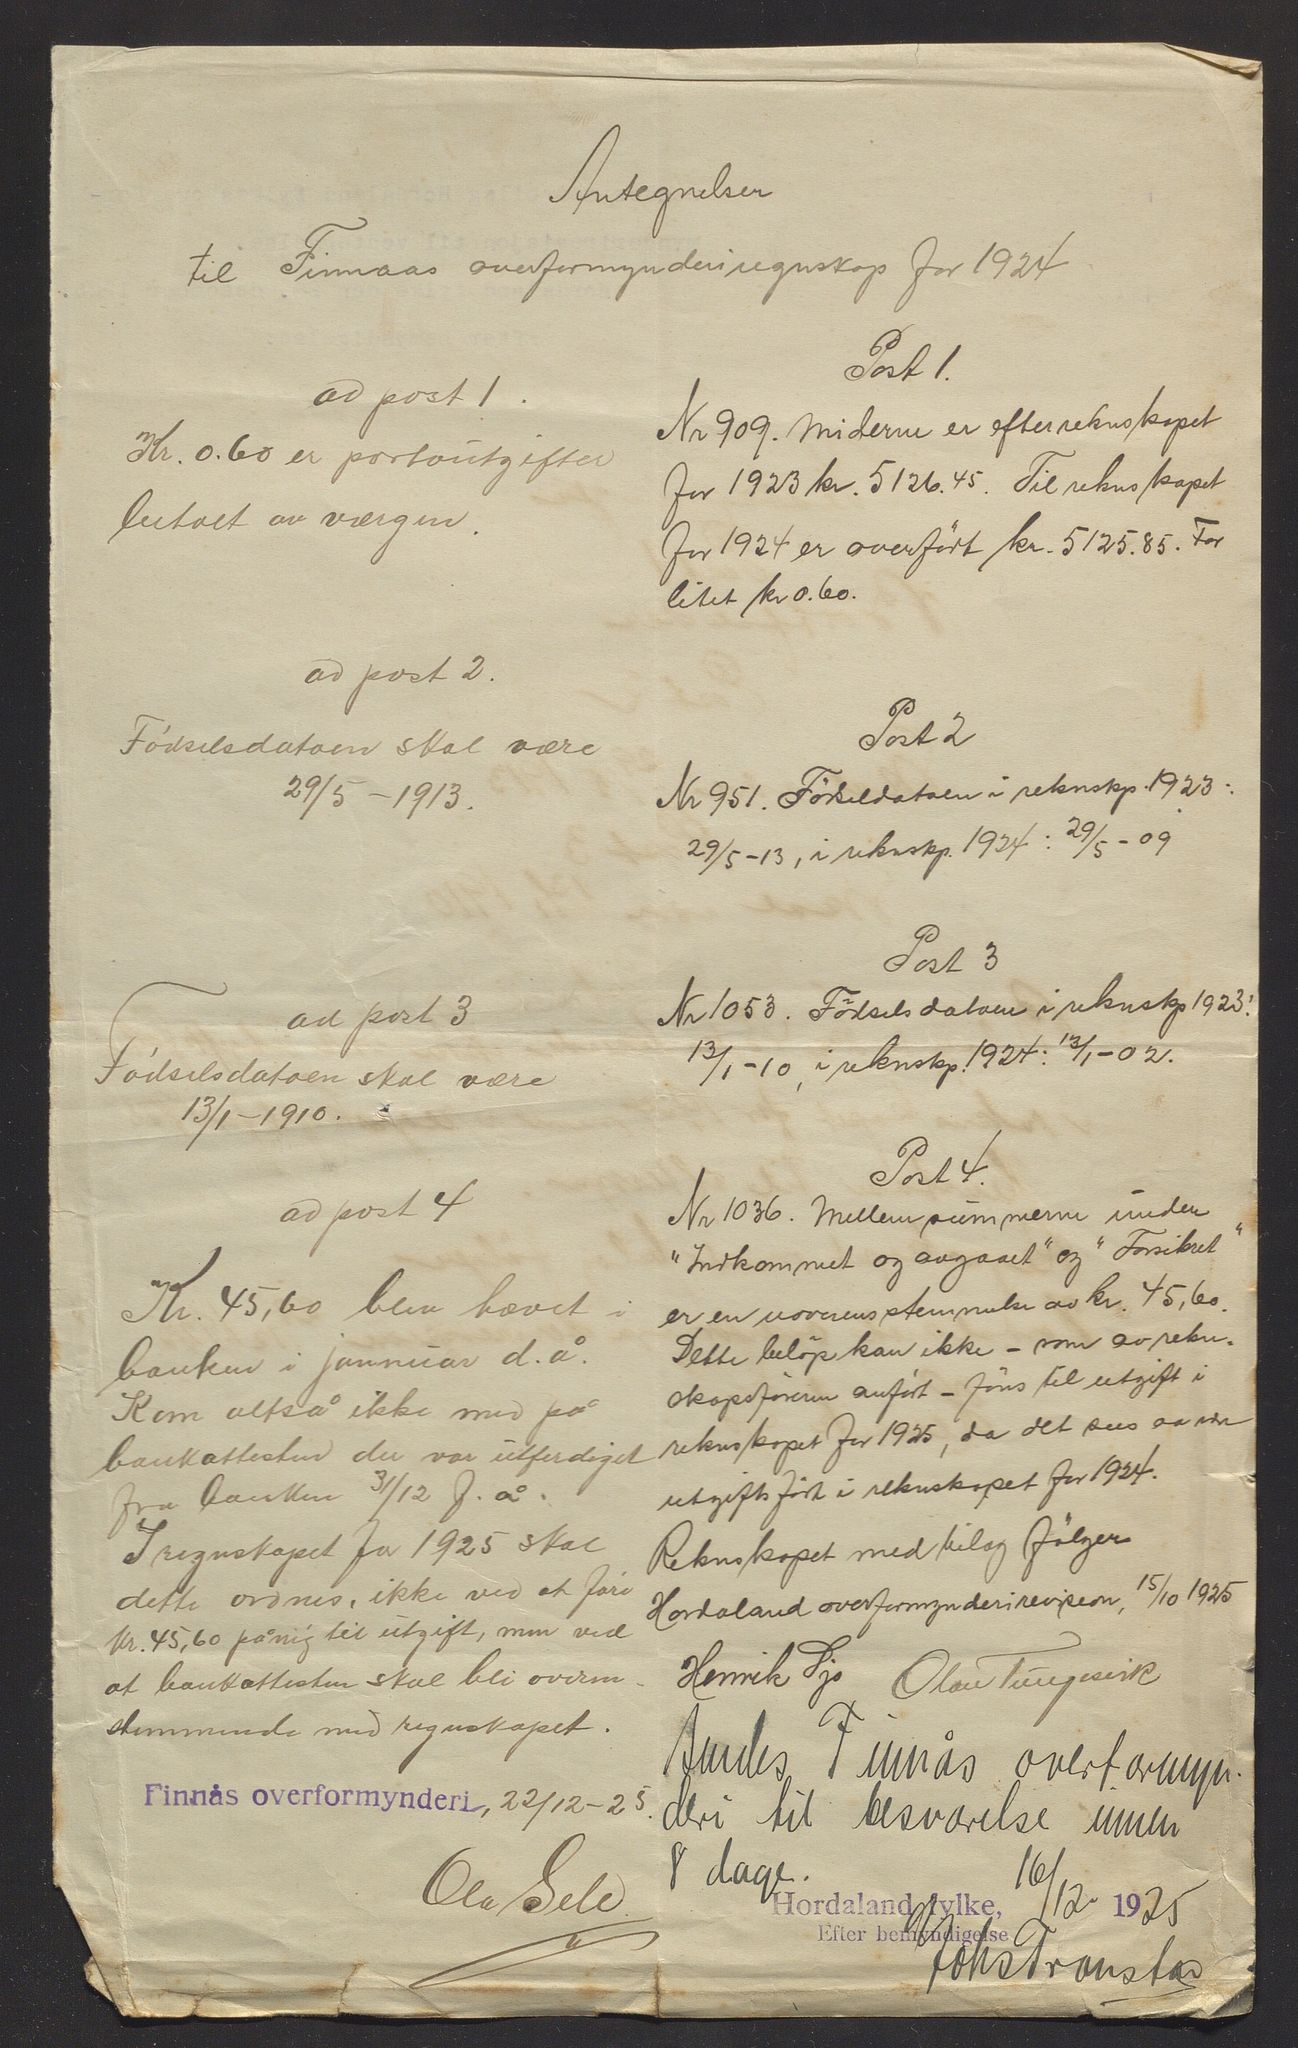 Antegnelser
til Finnaas overformynderiregnskap for 1924
Post 1.
Nr 909. Midlerne er efter reknskapet
for 1923 kr. 5126.45. Til reknskapet
for 1924 er overført kr. 5125.85. For
litet kr 0.60.
Post 2
Nr 951. Fødseldatoen i reknskp. 1923:
29/5-13, i reknskp. 1924: 29/5-09
Post 3
Nr 1053. Fødselsdatoen i reknskp 1923:
13/1-10, i reknskp. 1924: 13/1-02.
Post 4.
Nr 1036. Mellem summerne under
"Indkommet og avgaaet" og "Forsikret"
er en uoverensstemmelse av kr. 45,60.
Dette beløp kan ikke - som av rekn-
skapsføreren anført - føres til utgift i
reknskapet for 1925, da det sees aa være
utgiftsført i reknskapet for 1924.
Reknskapet med bilag følger
Hordaland overformynderirevision, 15/10 1925
Henrik Sjo Olav
Sendes Finnås overformyn-
deri til besvarelse innen
8 dage.
Hordaland fylke, 16/12 1925
Efter bemyndigelse
Johs Tronstad
ad post 1.
Kr. 0.60 er portoutgifter
betalt av værgen.
ad post 2.
Fødselsdatoen skal være
29/5-1913.
ad post 3
Fødselsdatoen skal være
13/1-1910.
ad post 4
Kr. 45,60 blev hævet i
banken i januar d.å.
Kom altså ikke med på
bankattesten der var utferdiget
fra banken 31/12 f.å.
I regnskapet for 1925 skal
dette ordnes, ikke ved at føre
kr. 45,60 på nij til utgift, men ved
at bankattesten skal bli overen-
stemmende med regnskapet.
Finnås overformynderi, 22/12-25.
Ola Sele